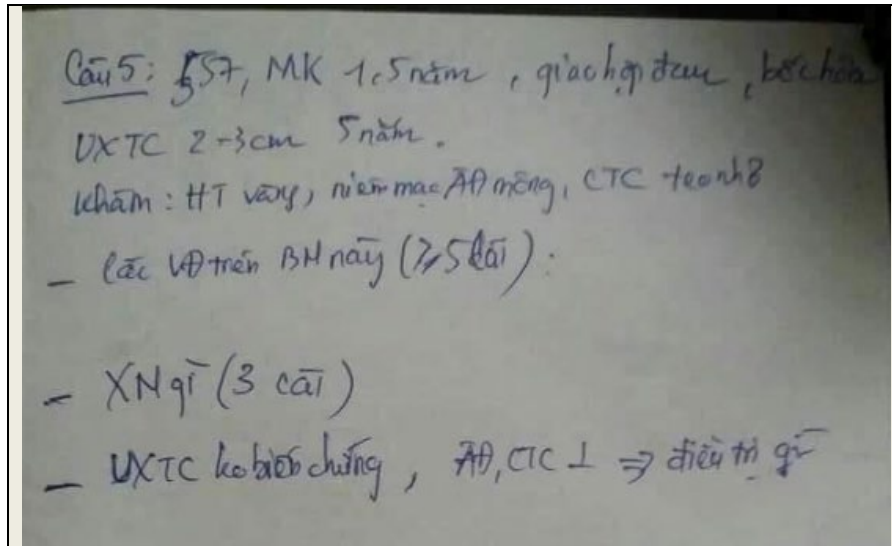 Câu 5: 57, MK 1,5 năm, giao hợp đau, bốc hỏa
UXTC 2-3cm 5 năm.
Khám: HT vàng, niêm mạc ÂĐ mỏng, CTC teo nhỏ
- Các VĐ trên BN này (≥5 cái):
- XN gì (3 cái)
- UXTC ko biến chứng, ÂĐ, CTC ⊥ ⇒ điều trị gì